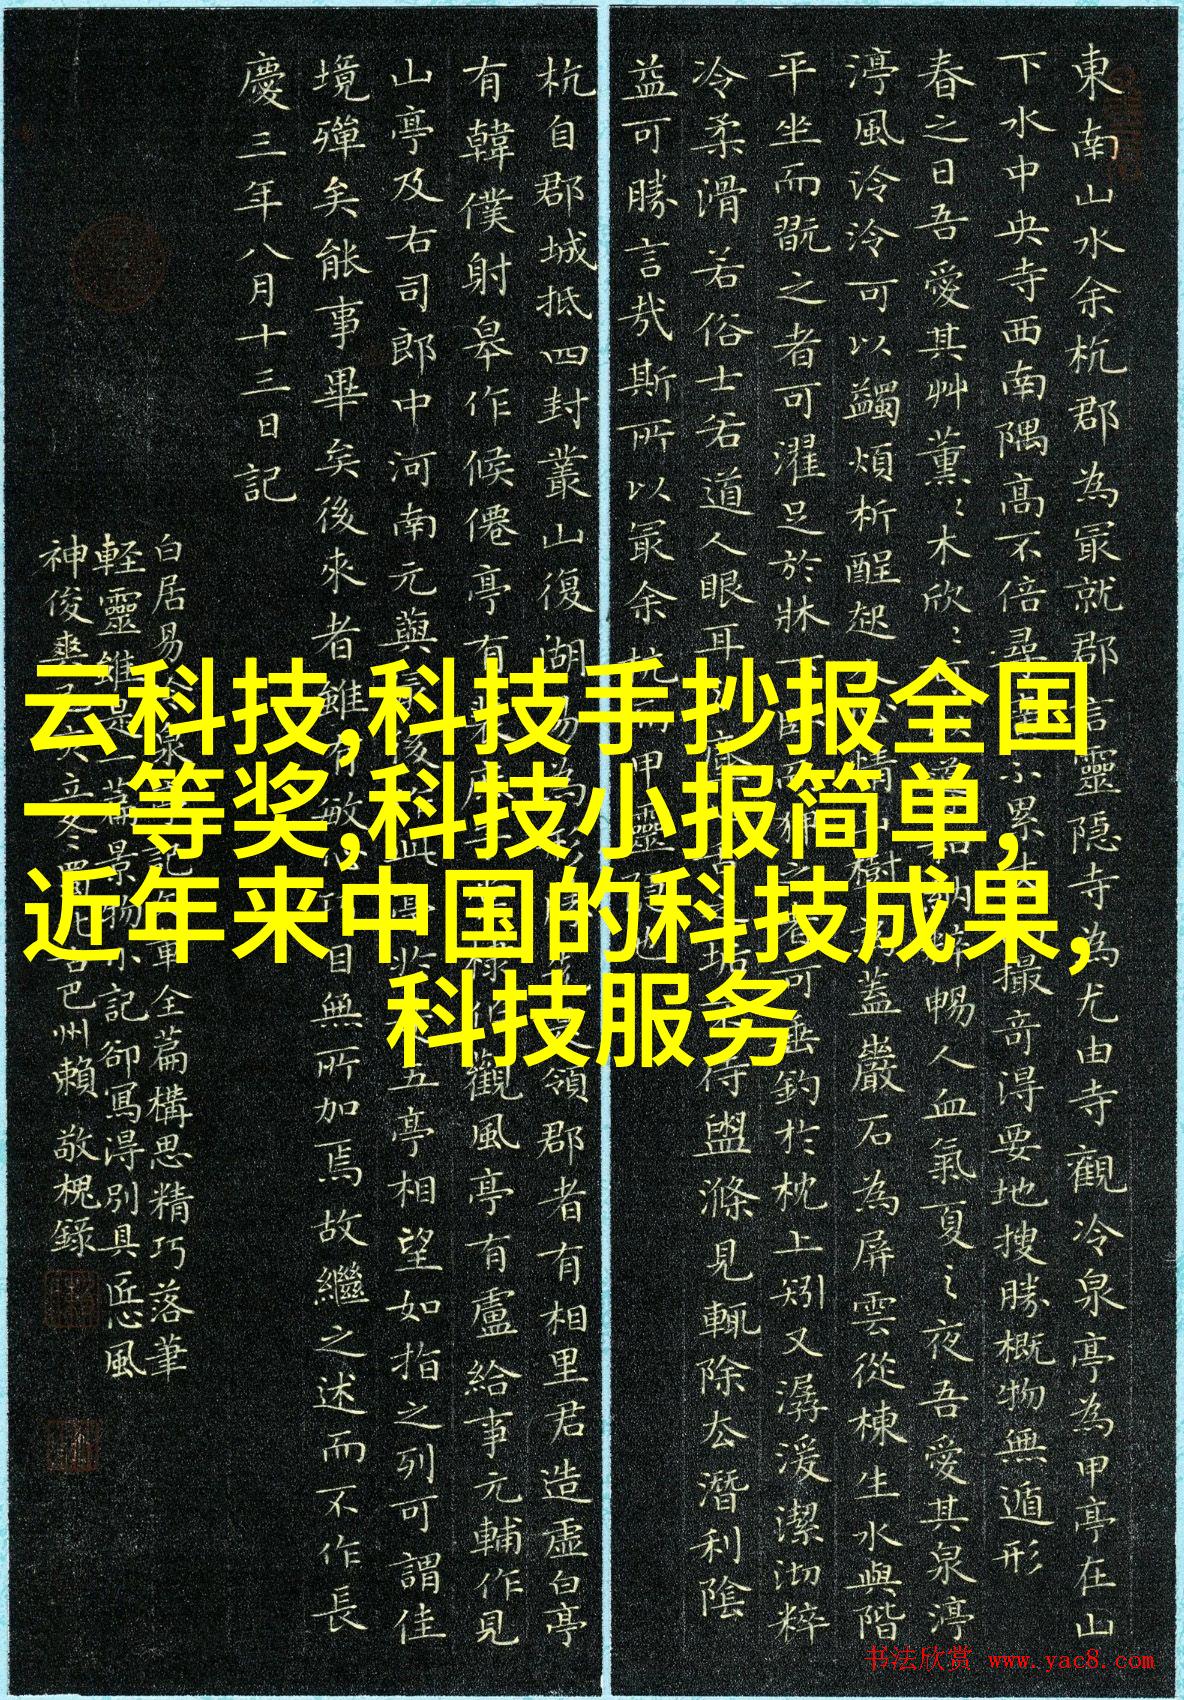 東南山水余杭郡為冣就郡言靈隐寺為尤由寺觀冷泉亭為甲亭在山
下水中央寺西南隅高不倍尋不累撮奇淂要地搜勝概物無遁形
春之日吾愛其艸薰〻木欣〻暢人血氣夏之夜吾愛其泉渟
渟風泠泠可以蠲煩析酲起人心情樹為蓋巖石為屏雲從棟生水與階
平坐而翫之者可濯足於牀下可垂釣於枕上矧又潺湲潔沏粹
冷柔滑若俗士若道人眼耳待盥滌見輒除去潛利陰
益可勝言哉斯所以冣余杭甲靈
杭自郡城抵四封叢山復湖易為形領郡者有相里君造虛白亭
有韓僕射皋作候僊亭有裴作觀風亭有盧給事元輔作見
山亭及右司郎中河南元藇五亭相望如指之列可謂佳
境殫矣能事畢矣後來者雖有敏目無所加焉故繼之述而不作長
慶三年八月十三日記
白居易記全篇構思精巧落筆
軽靈雖是一篇景物小記卻寫淂別具匠心風
神俊爽巴州賴敬槐錄
云科技,科技手抄报全国
一等奖,科技小报简单,
近年来中国的科技成果,
科技服务
书法欣赏 www.yac8.com